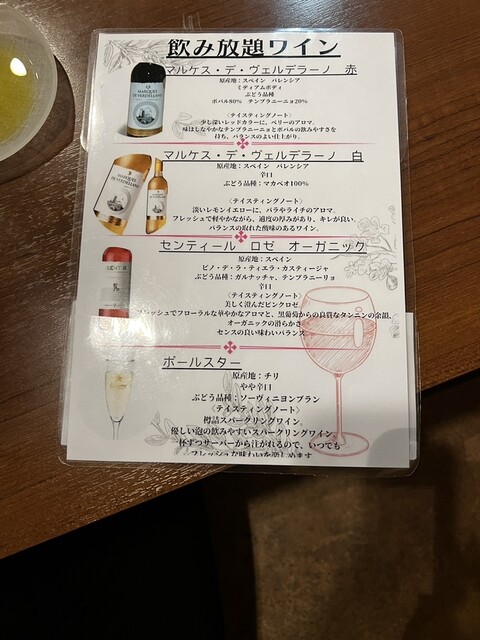 飲み放題ワイン
マルケス・デ・ヴェルデラーノ 赤
原産地：スペイン バレンシア
ミディアムボディ
ぶどう品種
ボバル80% テンプラニーニョ20%
〈テイスティングノート〉
少し深いレッドカラーに、ベリーのアロマ。
味はしなやかなテンプラニーニョとボバルの飲みやすさを
持ち、バランスのよい仕上がり。
マルケス・デ・ヴェルデラーノ 白
原産地：スペイン バレンシア
辛口
ぶどう品種：マカベオ100%
〈テイスティングノート〉
淡いレモンイエローに、バラやライチのアロマ。
フレッシュで軽やかながら、適度の厚みがあり、キレが良い。
バランスの取れた酸味のあるワイン。
センティール ロゼ オーガニック
原産地：スペイン
ビノ・デ・ラ・ティエラ・カスティージャ
ぶどう品種：ガルナッチャ、テンプラニーリョ
辛口
〈テイスティングノート〉
美しく澄んだピンクロゼ
フレッシュでフローラルな華やかなアロマと、黒葡萄からの良質なタンニンの余韻、
オーガニックの滑らかさ
センスの良い味わいバランス
ポールスター
原産地：チリ
やや辛口
ぶどう品種：ソーヴィニヨンブラン
〈テイスティングノート〉
樽詰スパークリングワイン。
優しい泡の飲みやすいスパークリングワイン。
一杯ずつサーバーから注がれるので、いつでも
フレッシュな味わいを楽しめます
MARQUES
DE VERDELLANO
MARQUES
DE VERDELLANO